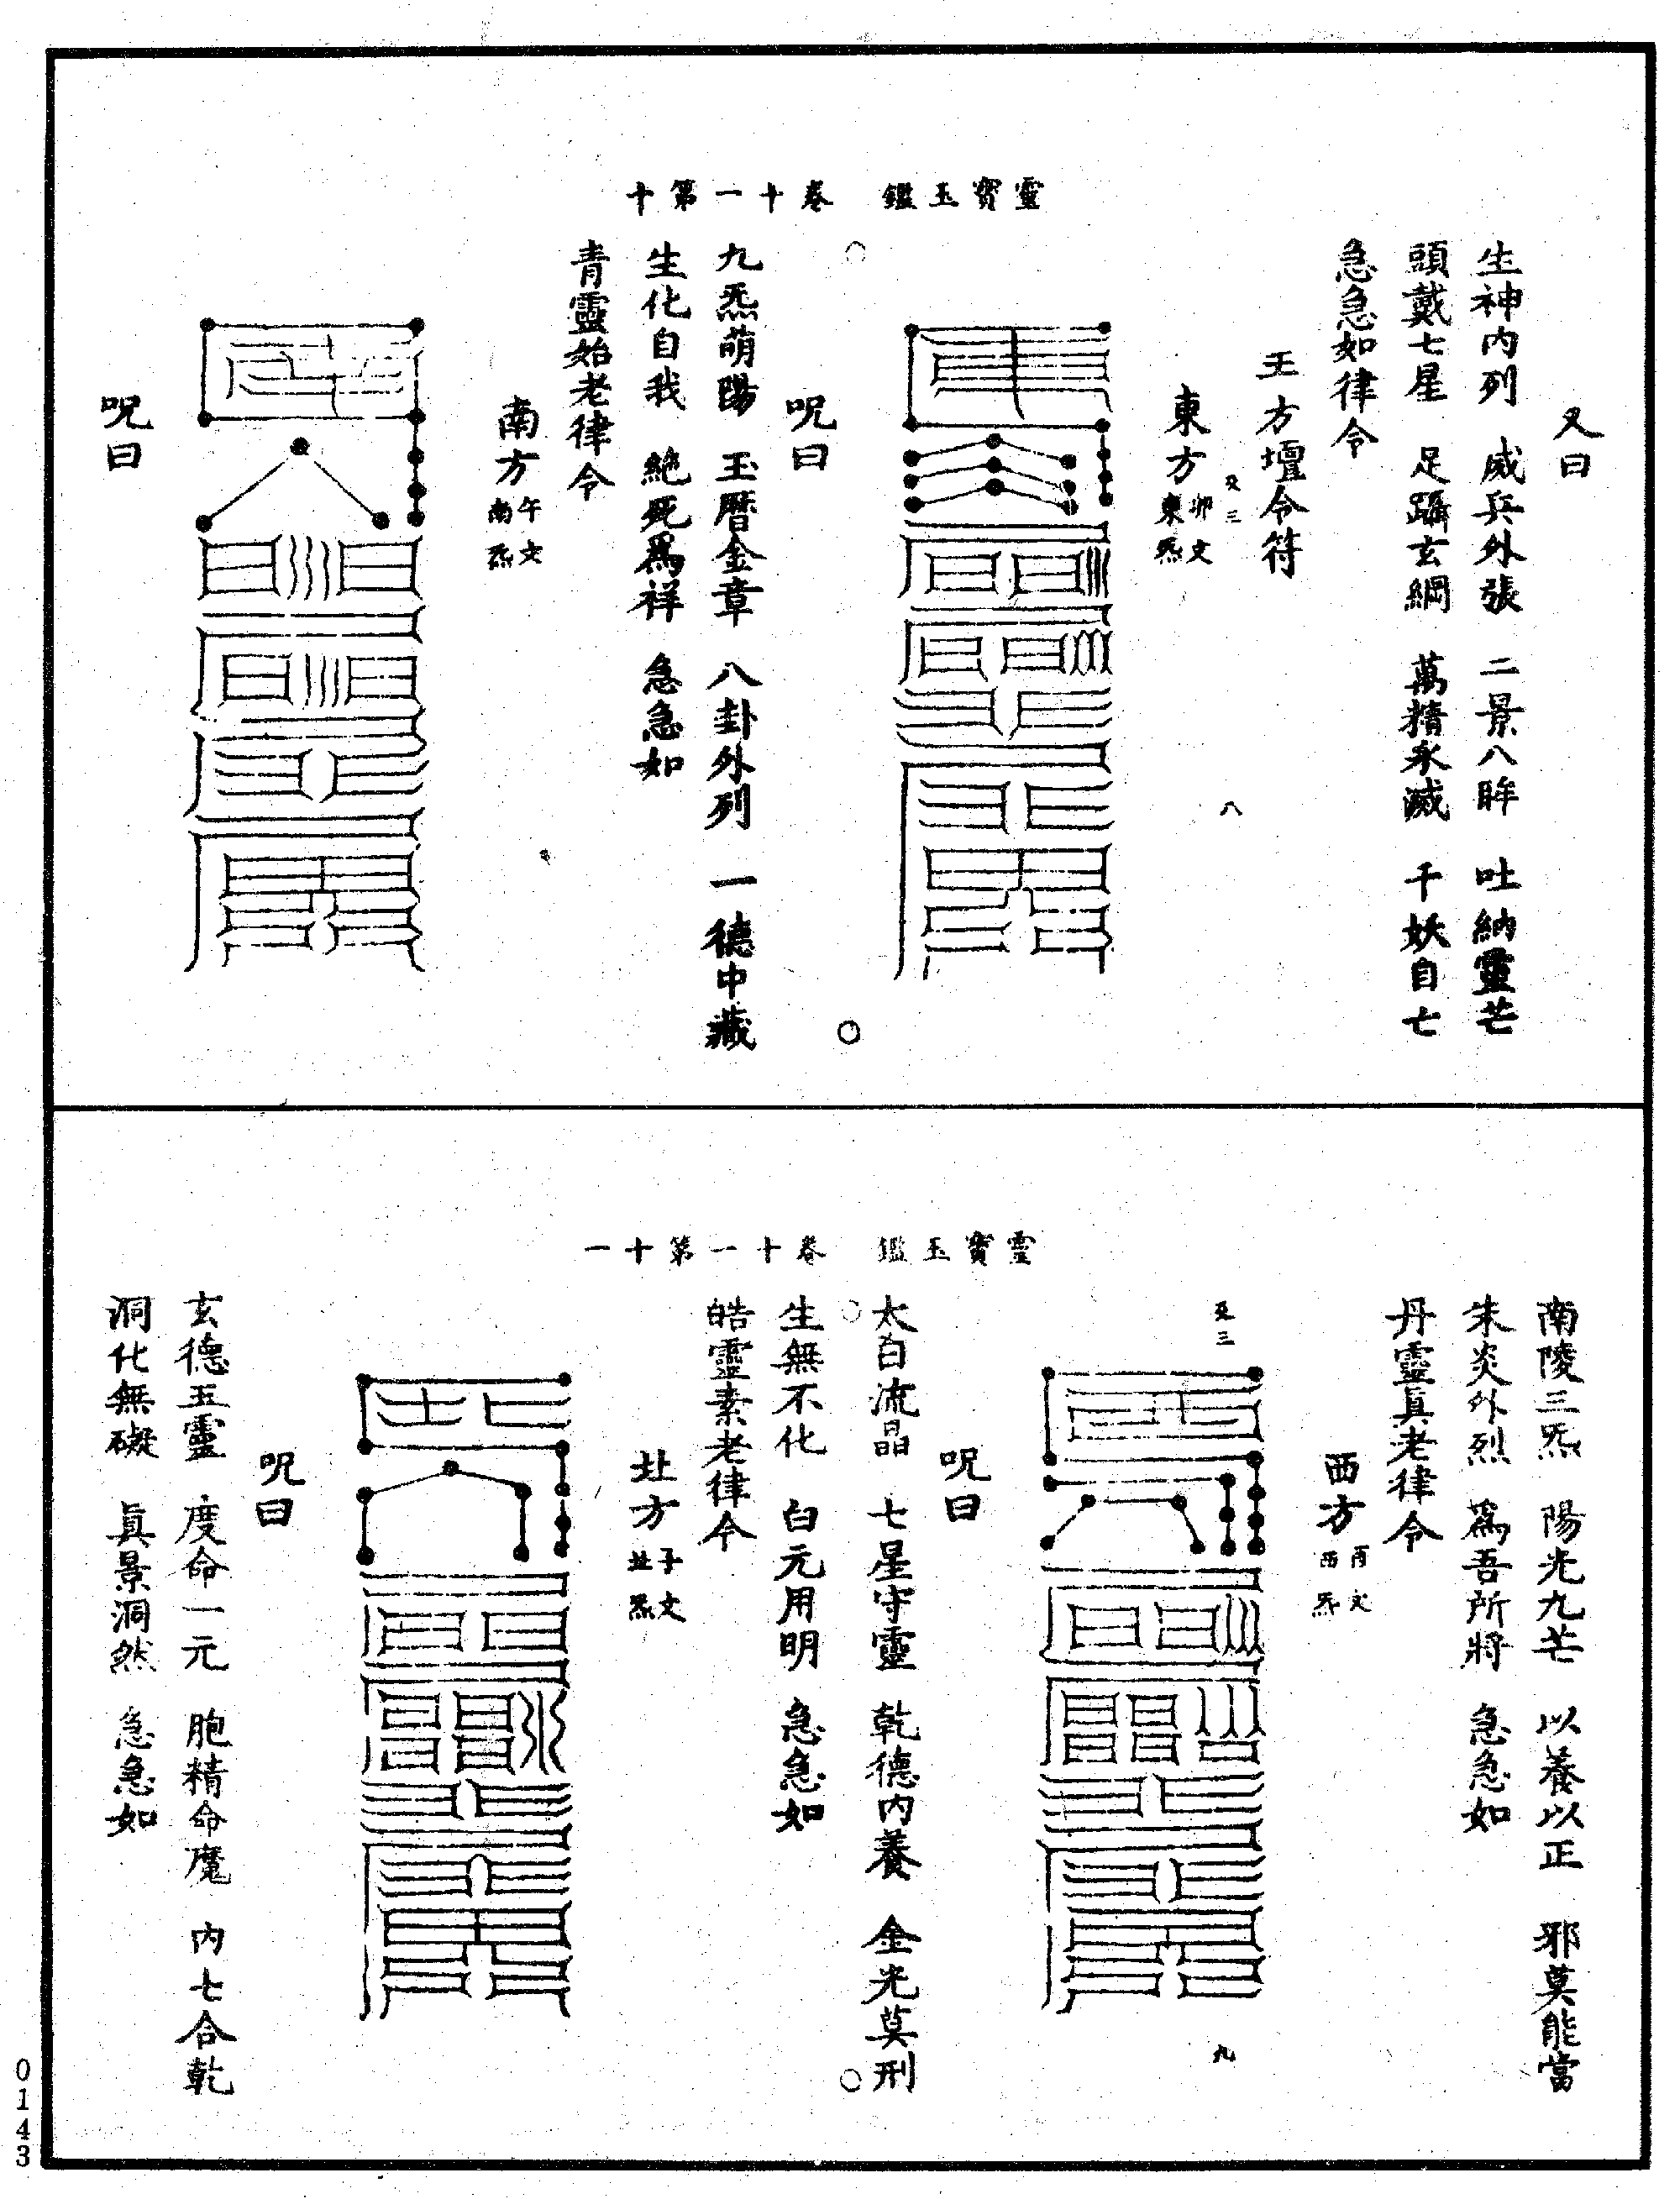 靈寶玉鑑　卷十一第十
又曰
生神内列　威兵外張　二景八眸　吐納靈芒
頭戴七星　足躡玄綱　萬精永滅　千妖自亡
急急如律令
王方壇令符
及三　八
東方卯文東炁
呪曰
九炁萌陽　玉曆金章　八卦外列　一德中藏
生化自我　絶死爲祥　急急如
青靈始老律令
南方午文南炁
呪曰
靈寶玉鑑　卷十一第十一
南陵三炁　陽光九芒　以養以正　邪莫能當
朱炎外烈　爲吾所將　急急如
丹靈眞老律令
西方酉文西炁
及三　九
呪曰
太白流晶　七星守靈　乾德内養　金光莫刑
生無不化　白元用明　急急如
皓靈素老律令
北方子文北炁
呪曰
玄德五靈　度命一元　胞精命魔　内七合乾
洞化無礙　眞景洞然　急急如
0143